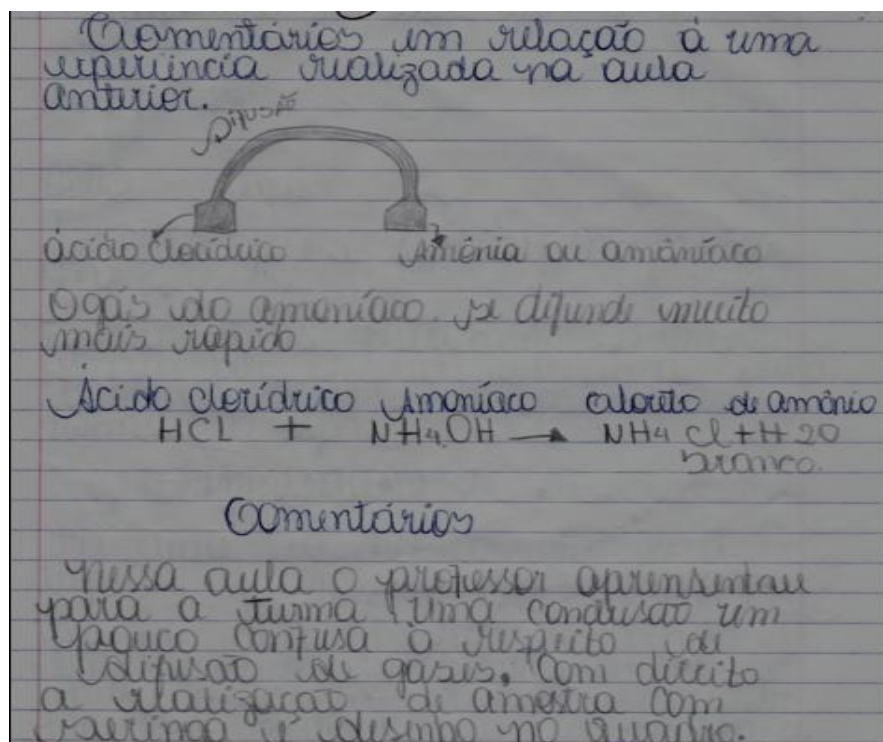 Comentários em relação à uma
experiência realizada na aula
anterior.
Difusão
ácido clorídrico Amônia ou amôníaco
O gás do amoníaco se difunde muito
mais rápido
Ácido clorídrico Amoníaco cloreto de amônio
HCL + NH4OH → NH4 Cl + H20
branco.
Comentários
Nessa aula o professor aprensentau
para a turma uma conclusão um
pouco confusa a respeito de
difusão de gases. Com direito
a realização de amostra com
seringa e desenho no quadro.